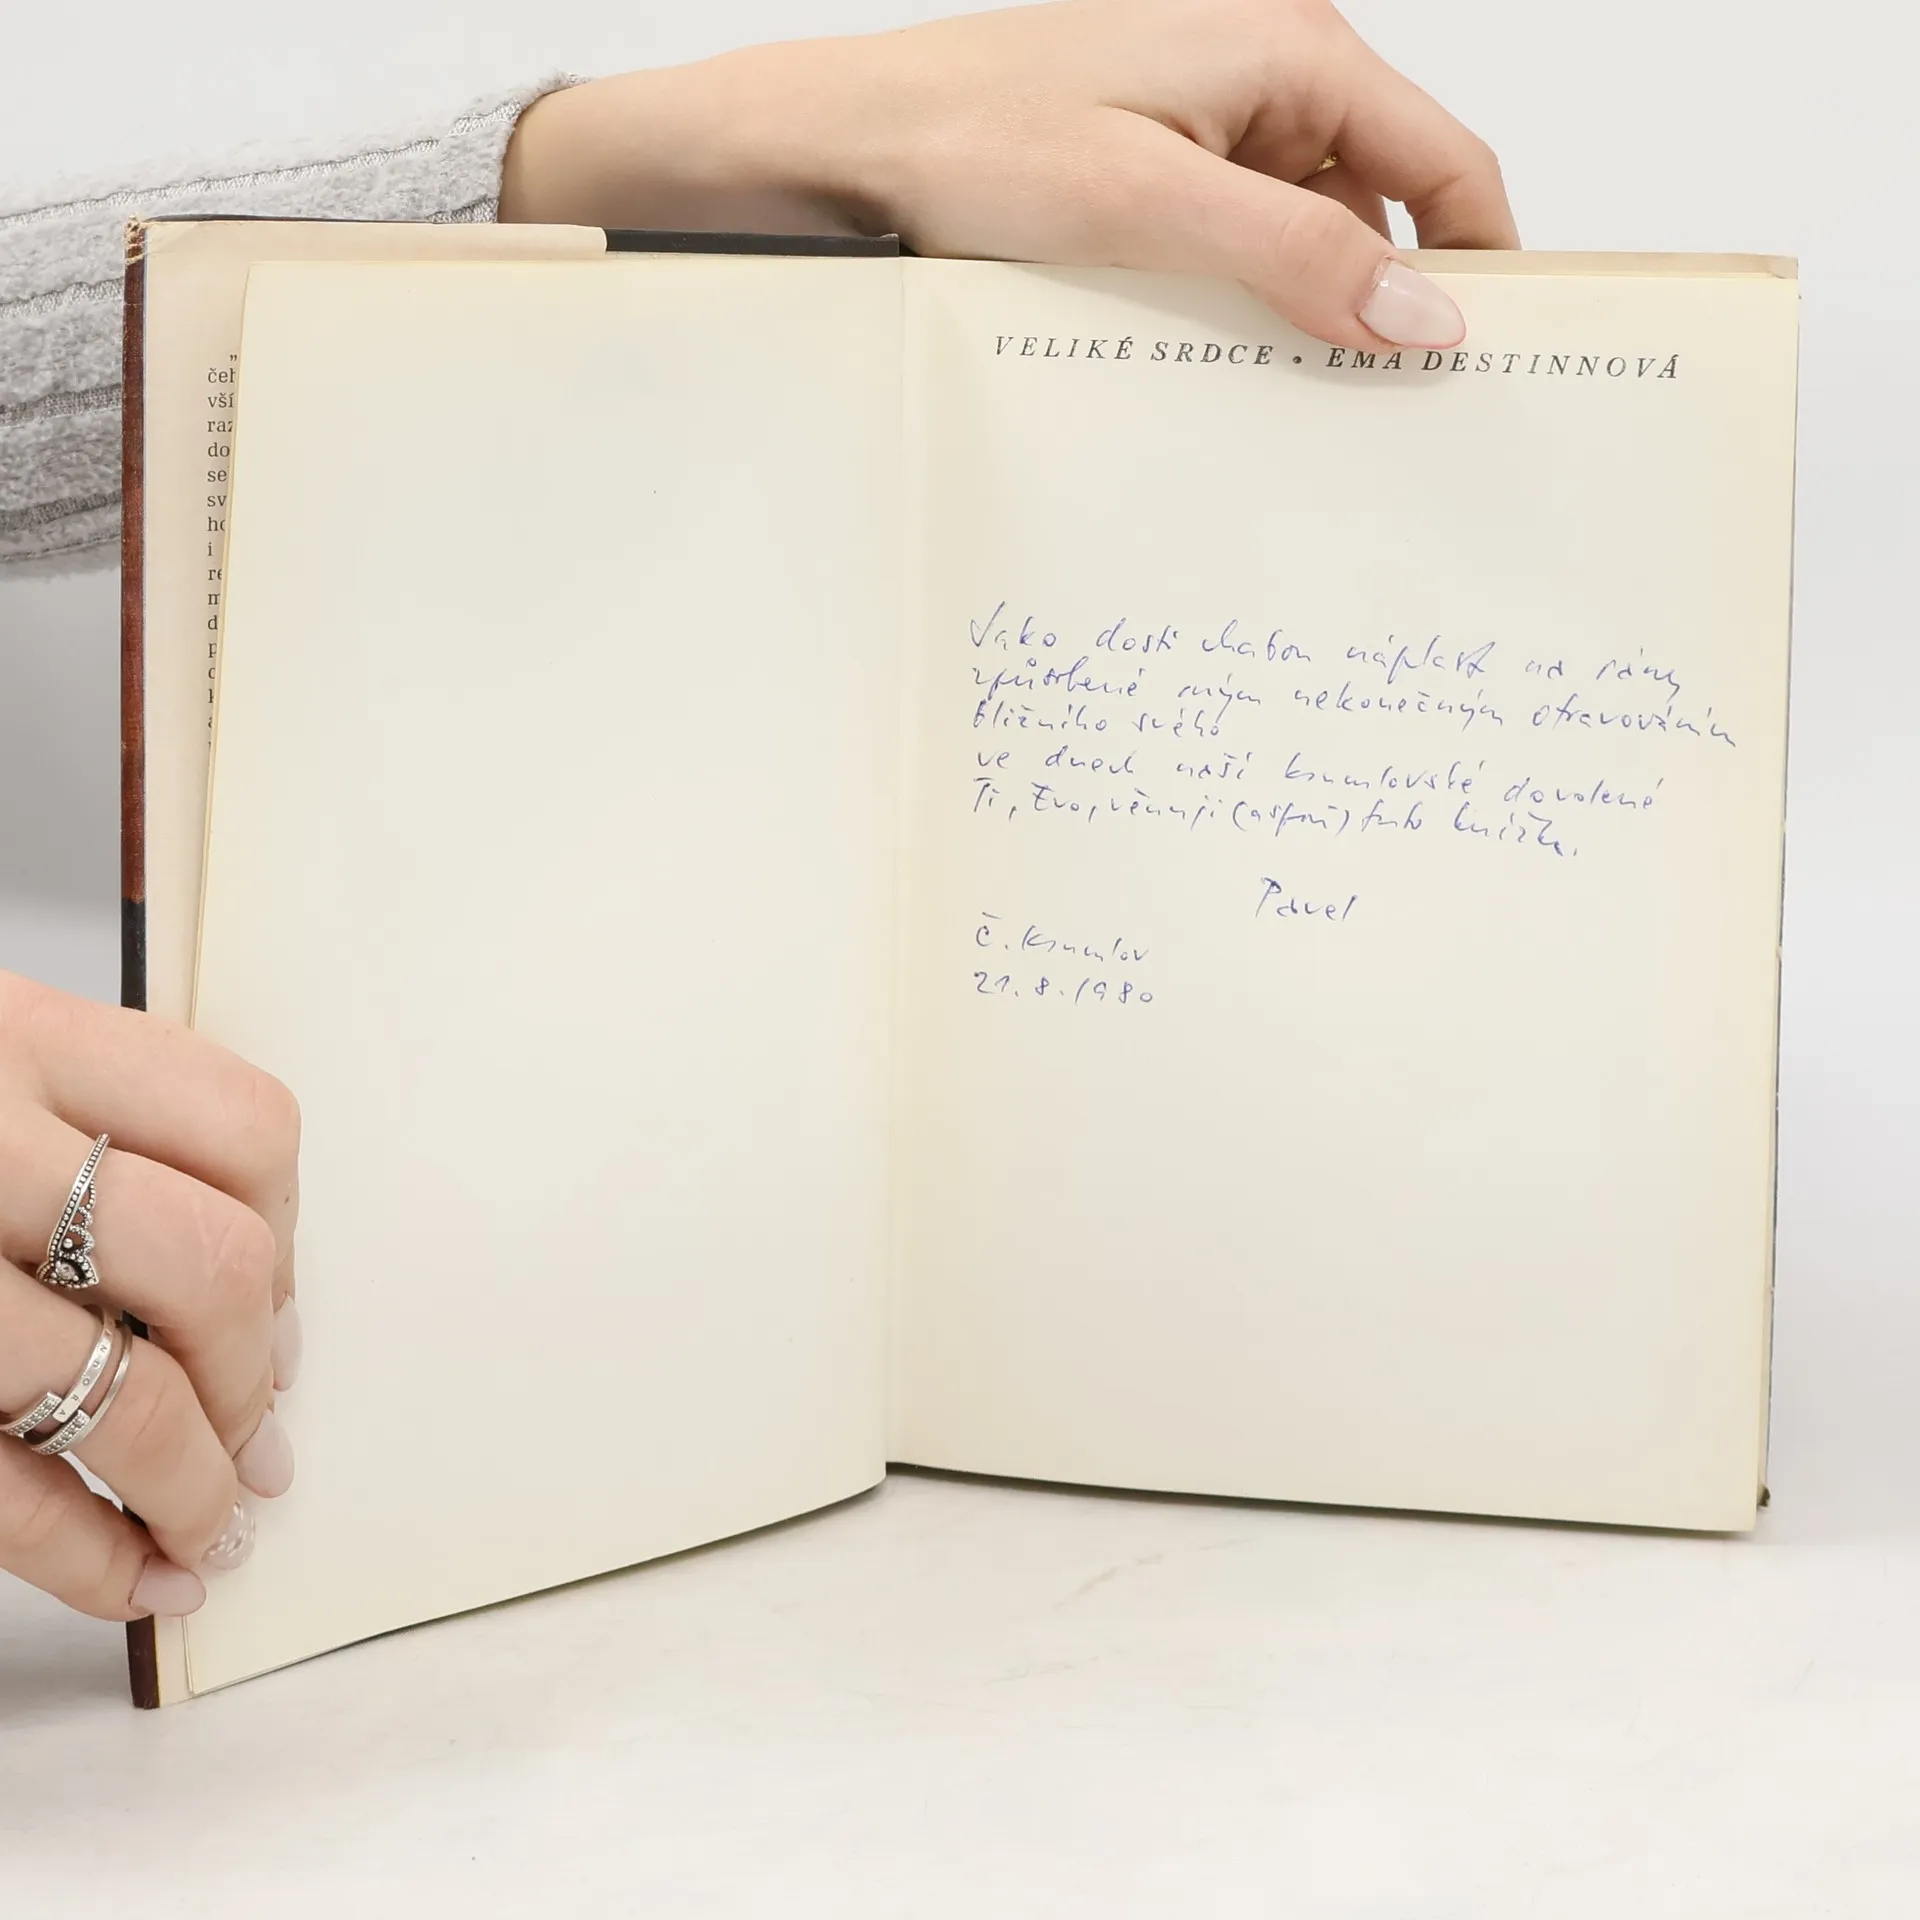 „
čeh
vší
raz
do
se
sv
ho
i
re
m
d
p
VELIKÉ SRDCE • EMA DESTINNOVÁ
Jako dosti chabou náplast na rány
způsobené mým nekonečným otravováním
bližního svého
ve dnech naší krumlovské dovolené
Ti, Evo, věnuji (aspoň) tuto knížku.
Pavel
Č. Krumlov
21. 8. 1980
NDORA